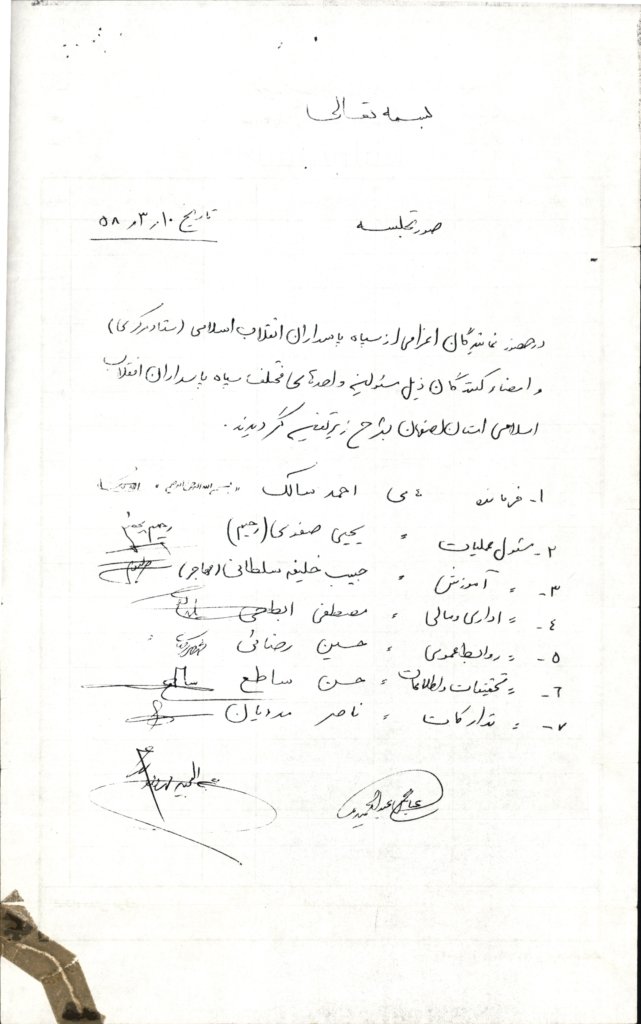 بسمه تعالی
صورتجلسه
تاریخ ۱۰ر۳ر۵۸
در حضور نمایندگان اعزامی از سپاه پاسداران انقلاب اسلامی (ستاد مرکزی)
و امضاء کنندگان ذیل مسئولین واحدهای مختلف سپاه پاسداران انقلاب
اسلامی استان اصفهان بشرح زیر تعیین گردیدند.
۱- فرمانده احمد سالک
۲- مسئول عملیات ، یحیی صفوی (رحیم)
۳- ، آموزش ، حبیب خلیفه سلطانی (مهاجر)
۴- ، اداری و مالی ، مصطفی ابطحی
۵- ، روابط عمومی ، حسین رضائی
۶- ، تحقیقات و اطلاعات ، حسن ساطع
۷- ، تدارکات ، ناصر مددیان